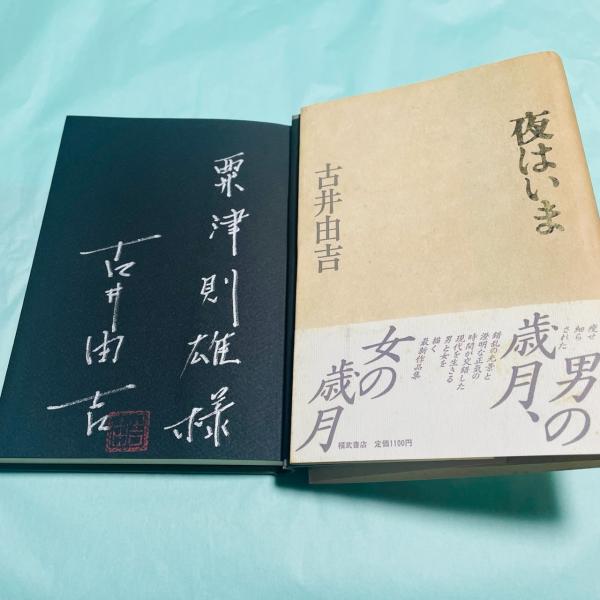 粟津則雄様
古井由吉
夜はいま
古井由吉
痩せ
細ら
された
男の
歳月、
錯乱の光景と
澄明な正気の
時間が交錯した
現代を生きる
男と女を
描く
最新作品集
女の
歳月
福武書店 定価1100円